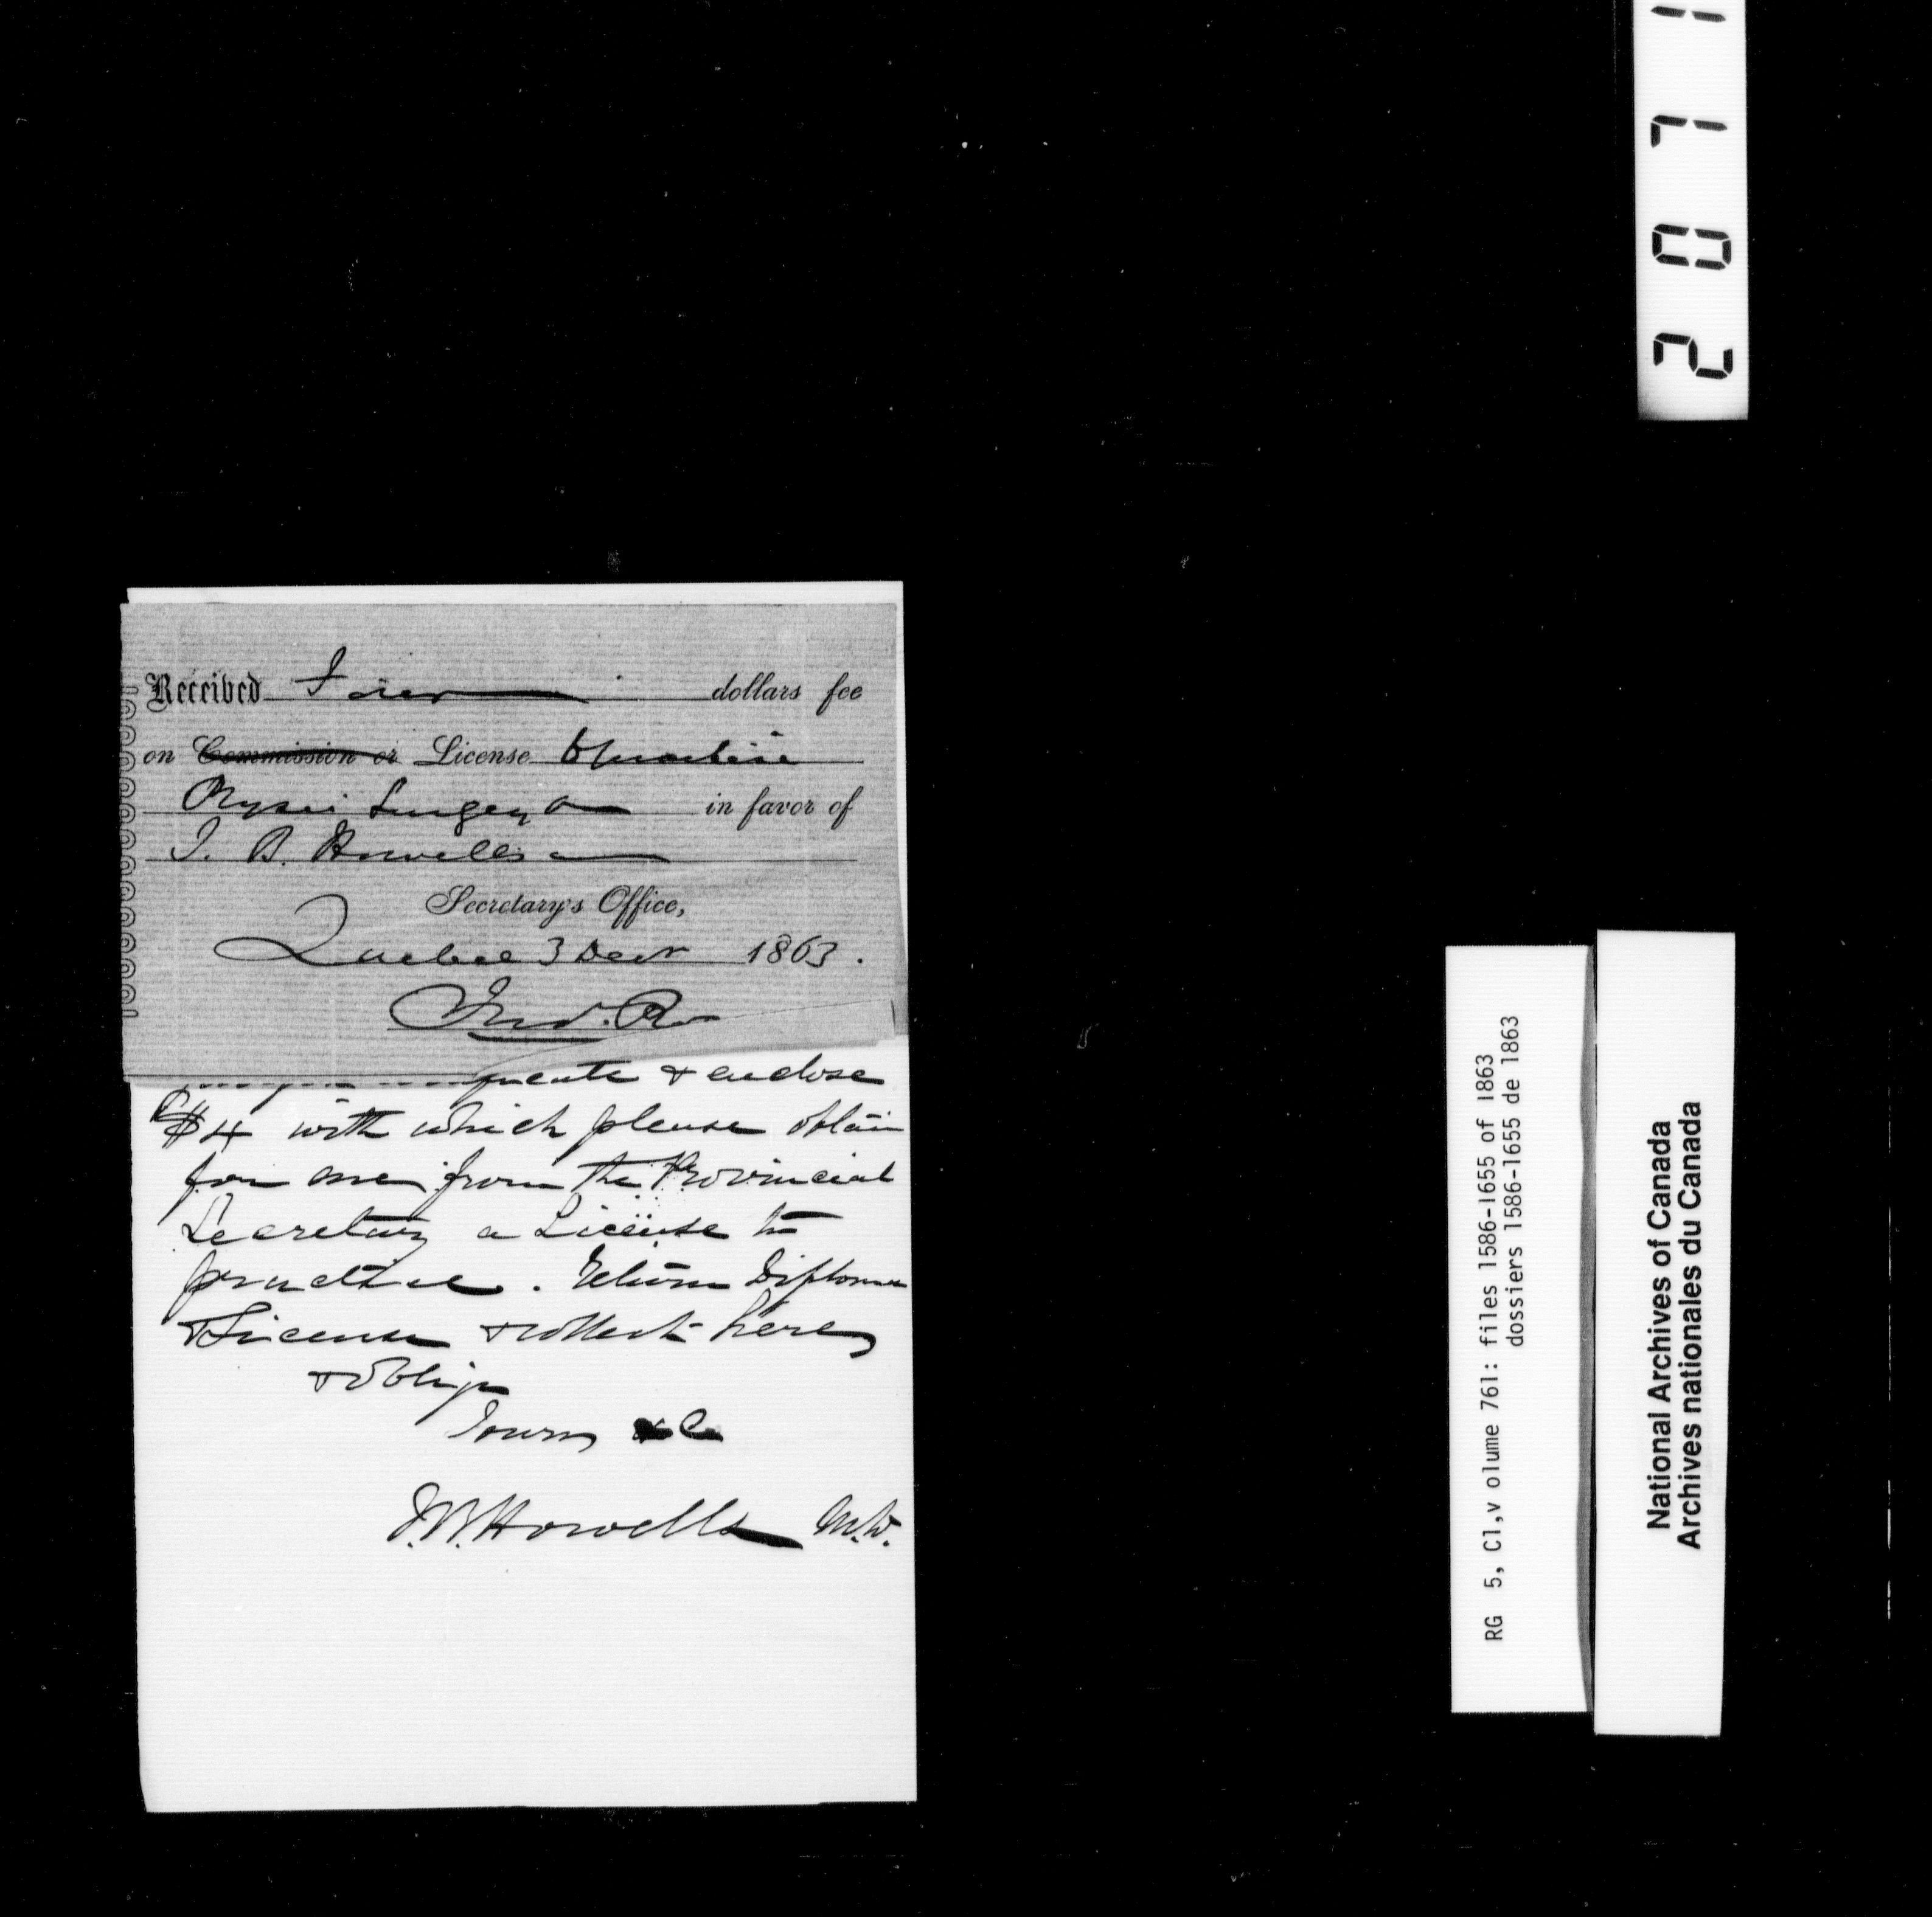 Received Four dollars fee
on Commission or License to practise
Physic Surgery &c in favor of
J. B. Howells
Secretary's Office,
Quebec 3 Decr 1863.
& enclose
$4 with which please obtain
for me from the Provincial
Secretary a License to
practice. Return Diploma
& License & collect here
& oblige
Yours &c
J.B. Howells M.D.
2071
RG 5, C1,v olume 761: files 1586-1655 of 1863
dossiers 1586-1655 de 1863
National Archives of Canada
Archives nationales du Canada